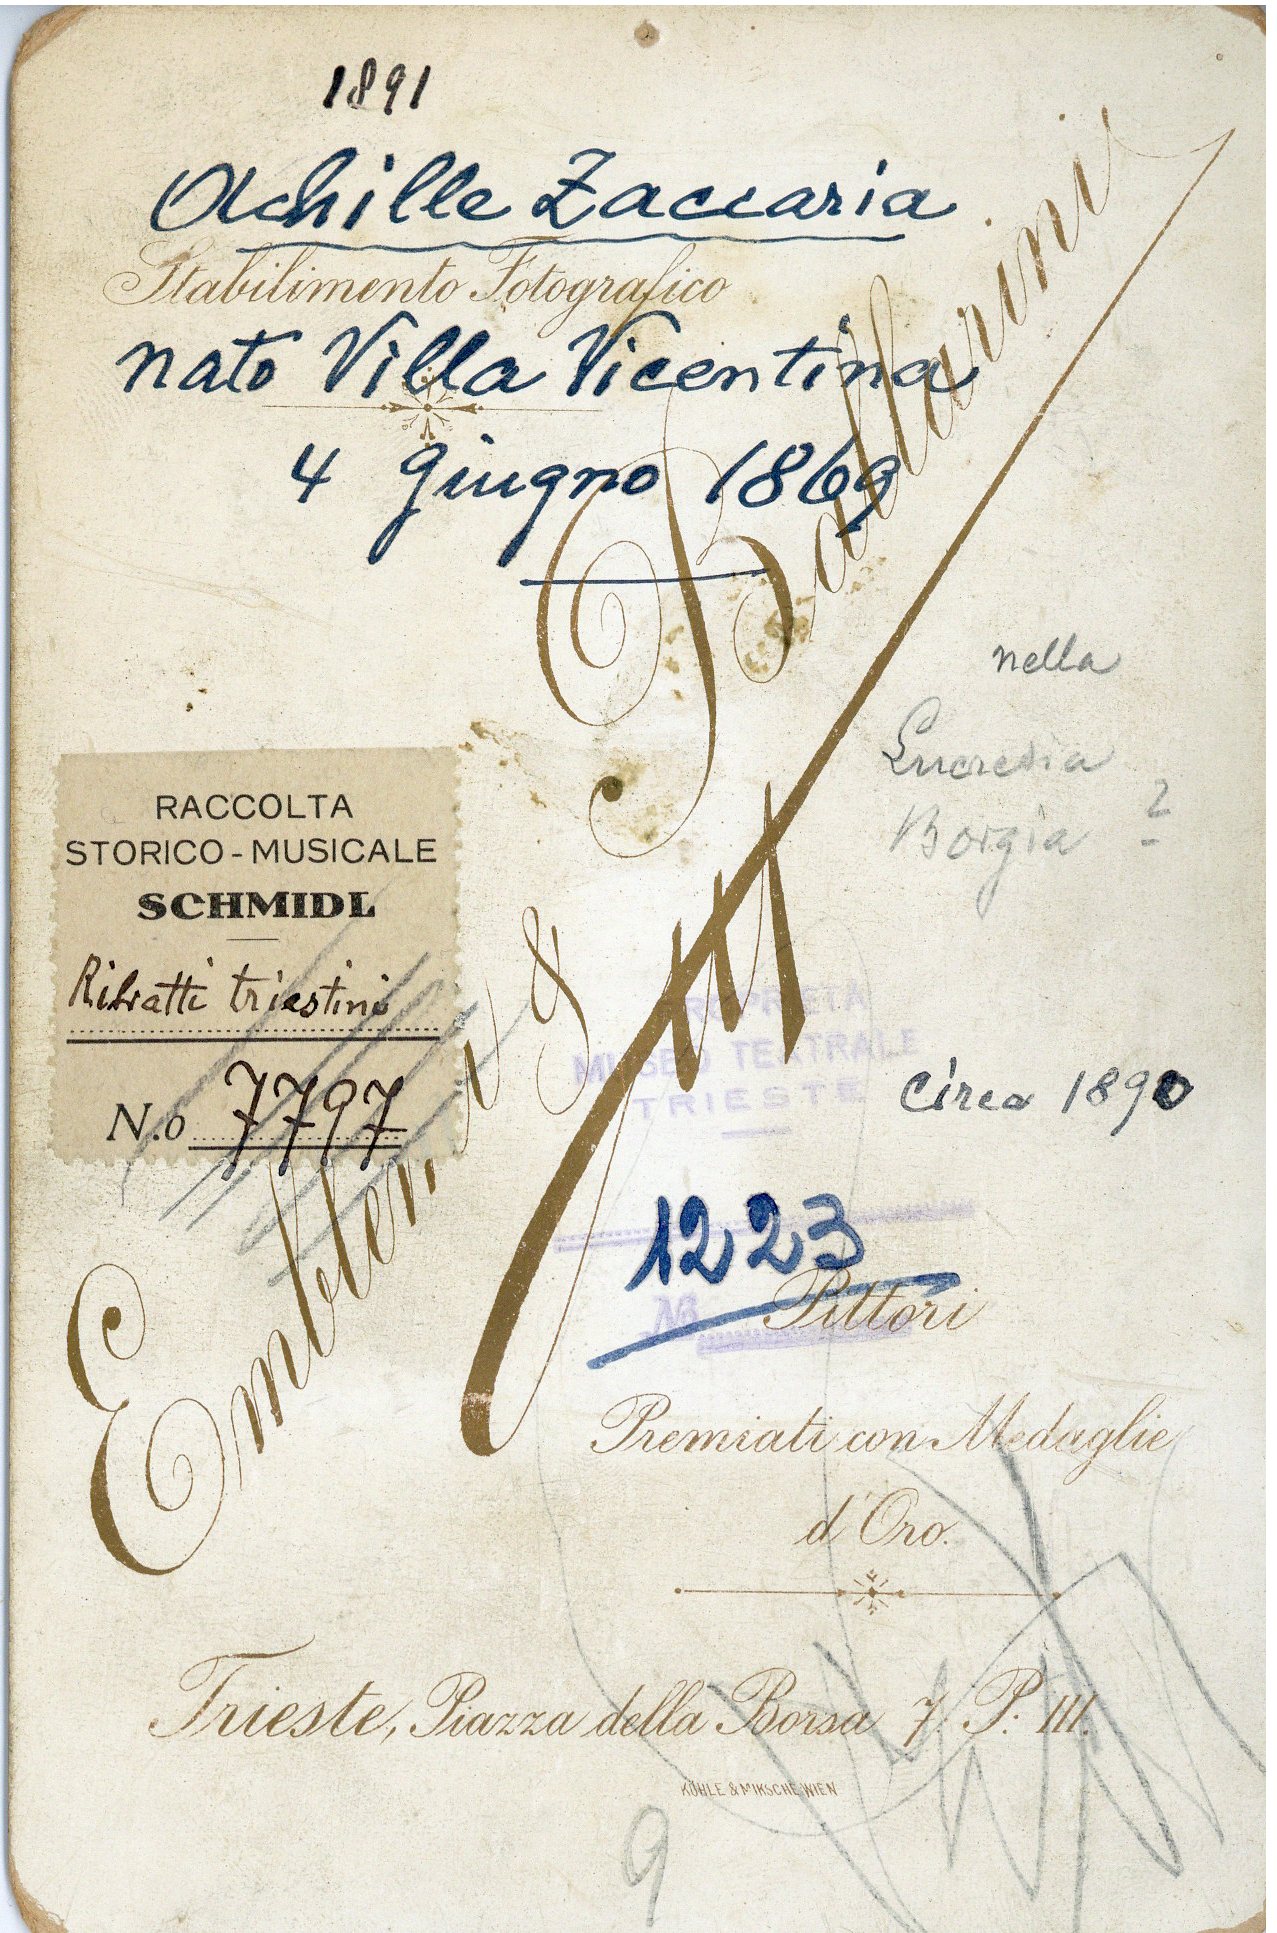 1891
Achille Zaccaria
Stabilimento Fotografico
nato Villa Vicentina
4 giugno 1869
&
Ballarini
nella
Lucrezia
Borgia ?
RACCOLTA
STORICO-MUSICALE
SCHMIDL
Ritratti triestini
N.o 7797
PROPRIETÀ
MUSEO TEATRALE
TRIESTE
circa 1890
1223
No
Pittori
Premiati con Medaglie
d'Oro.
Trieste, Piazza della Borsa 7. P. III.
KÜHLE & MIKSCHE WIEN
9